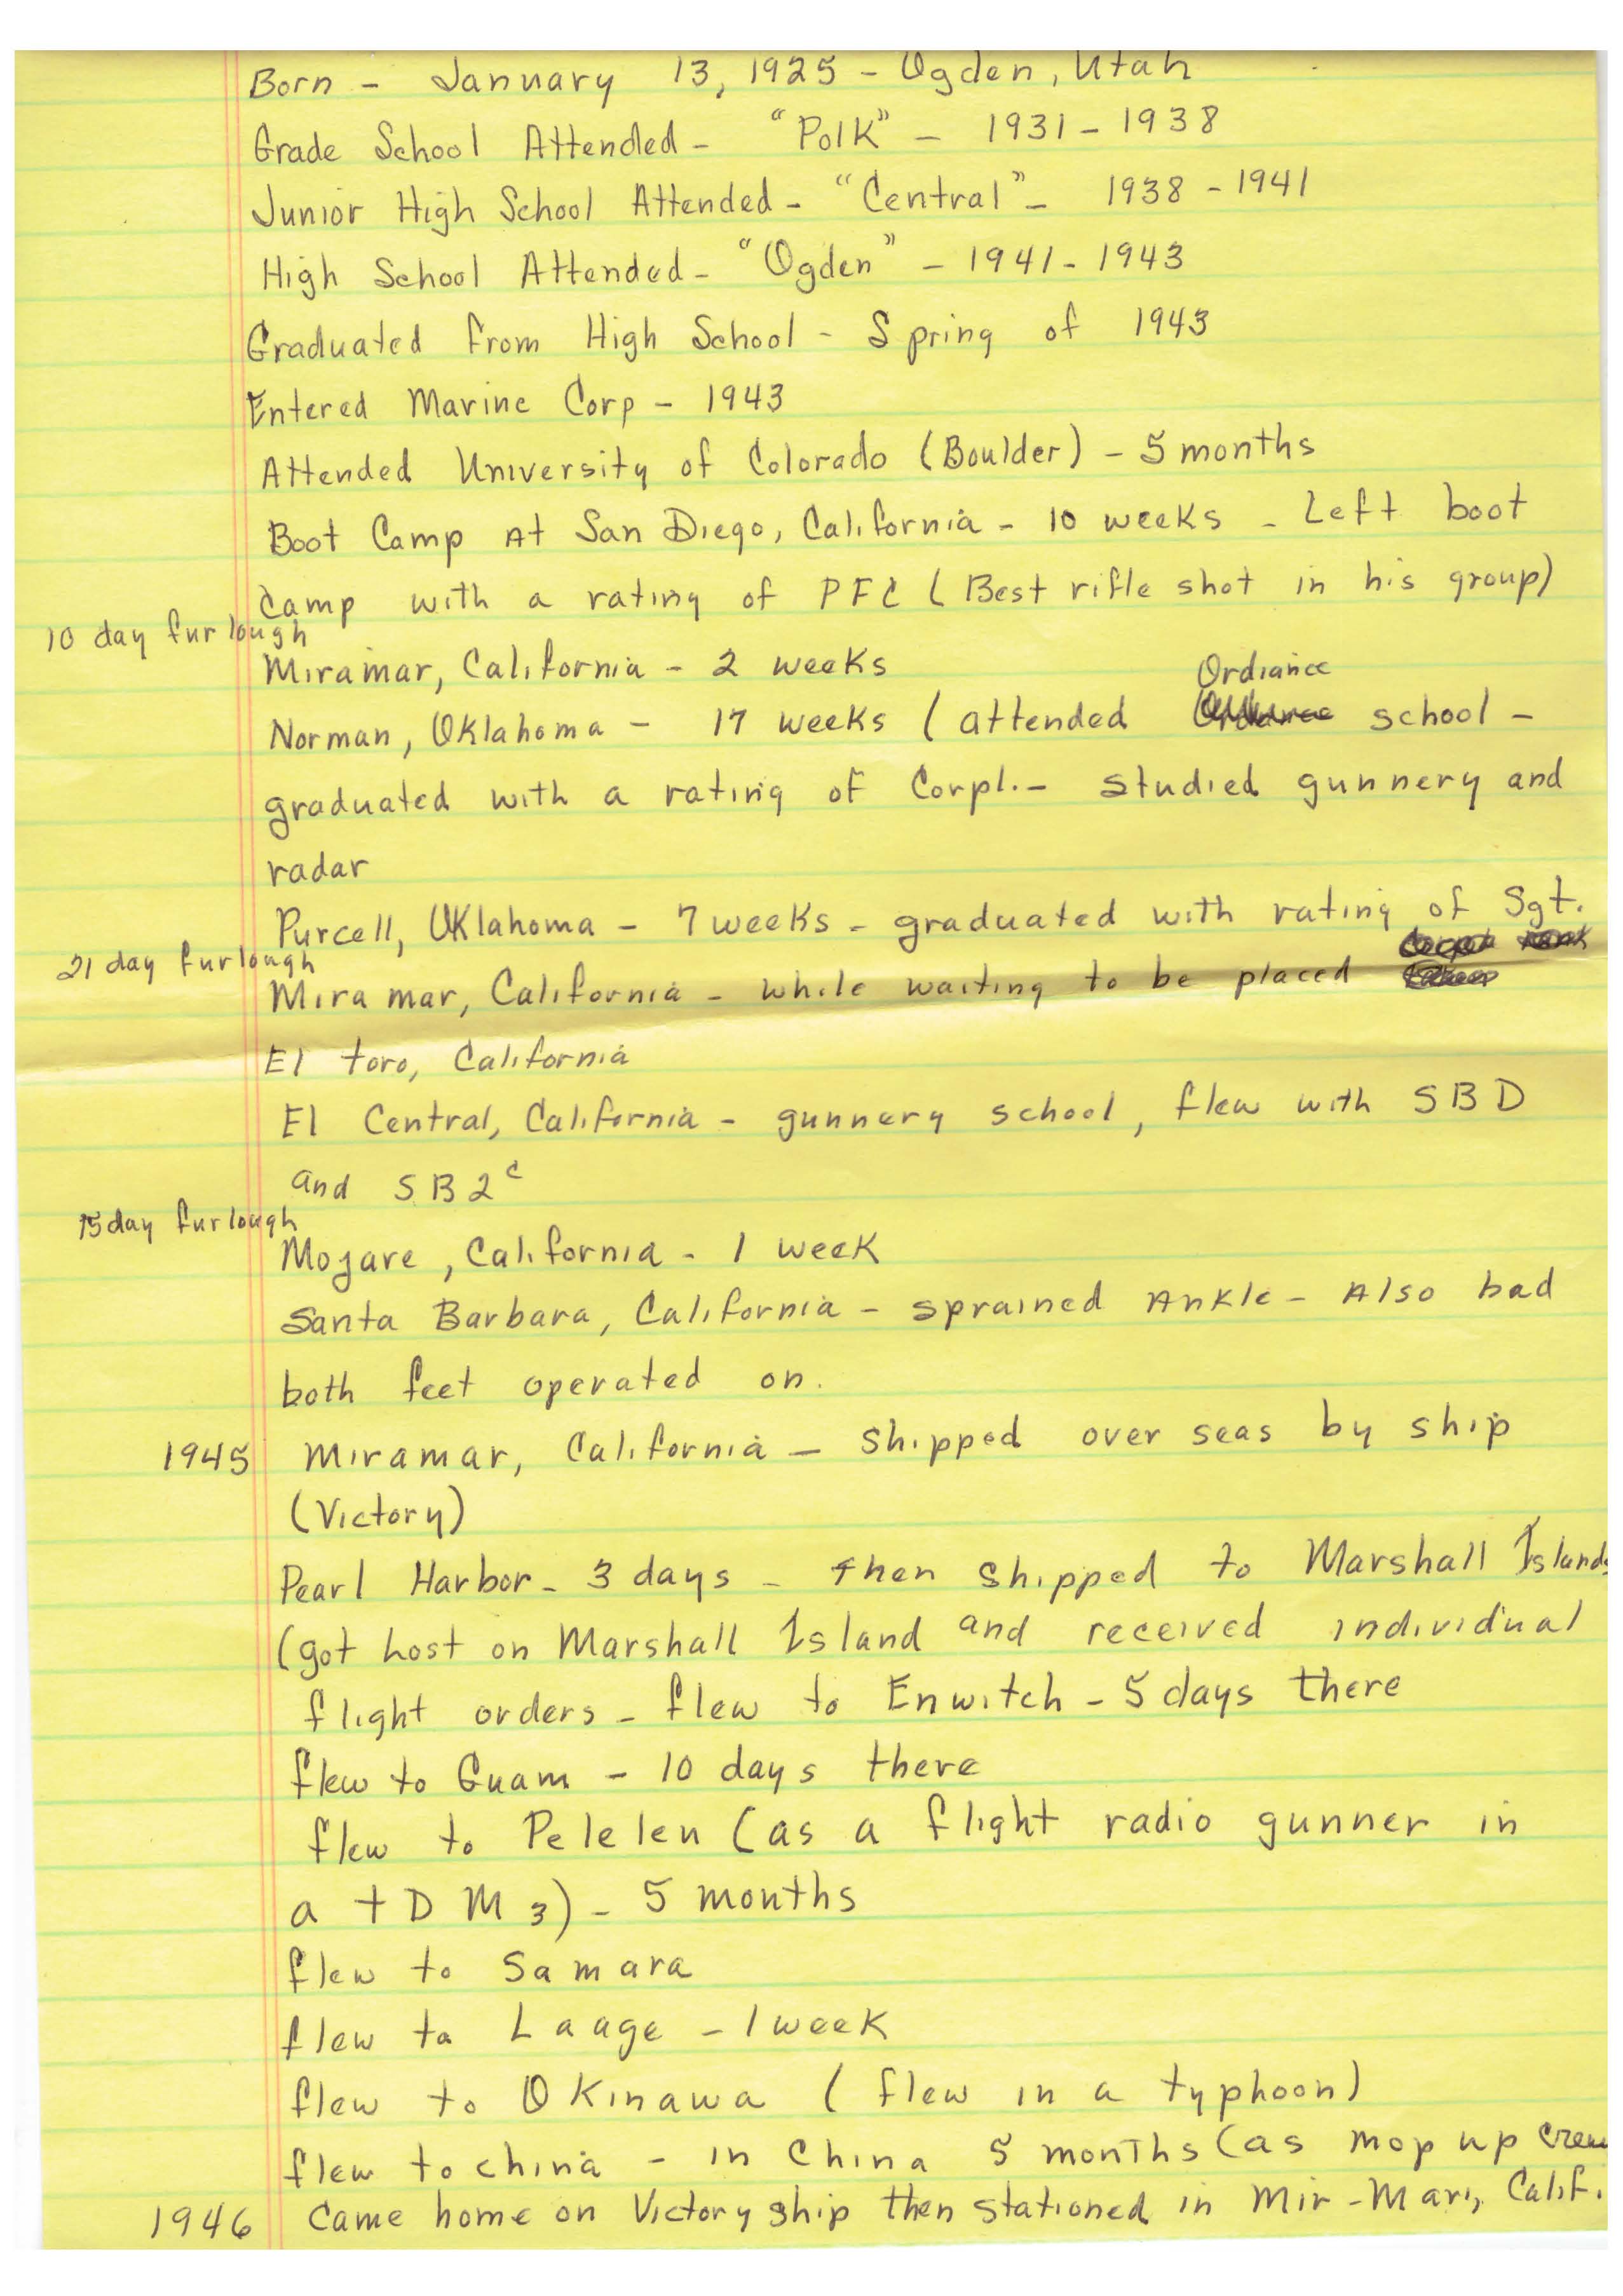 Born - January 13, 1925 - Ogden, Utah
Grade School Attended - "Polk" - 1931 - 1938
Junior High School Attended - "Central" - 1938 - 1941
High School Attended - "Ogden" - 1941 - 1943
Graduated from High School - Spring of 1943
Entered Marine Corp - 1943
Attended University of Colorado (Boulder) - 5 months
Boot Camp At San Diego, California - 10 weeks - Left boot
camp with a rating of PFC (Best rifle shot in his group)
10 day furlough
Miramar, California - 2 weeks
Ordiance
Norman, Oklahoma - 17 weeks (attended school -
graduated with a rating of Corpl. - studied gunnery and
radar
Purcell, Oklahoma - 7 weeks - graduated with rating of Sgt.
21 day furlough
Mira mar, California - while waiting to be placed
El toro, California
El Central, California - gunnery school, flew with SBD
and SB2C
15 day furlough
Mojave, California - 1 week
Santa Barbara, California - sprained Ankle - Also had
both feet operated on.
1945 Miramar, California - Shipped over seas by ship
(Victory)
Pearl Harbor - 3 days - then shipped to Marshall Islands
(got host on Marshall Island and received individual
flight orders - flew to Enwitch - 5 days there
flew to Guam - 10 days there
flew to Pelelen (as a flight radio gunner in
a + D M 3) - 5 months
flew to Samara
flew to Laage - 1 week
flew to Okinawa (flew in a typhoon)
flew to china - in China 5 months (as mop up crew
1946 Came home on Victory ship then stationed in Mir-Mar, Calif.